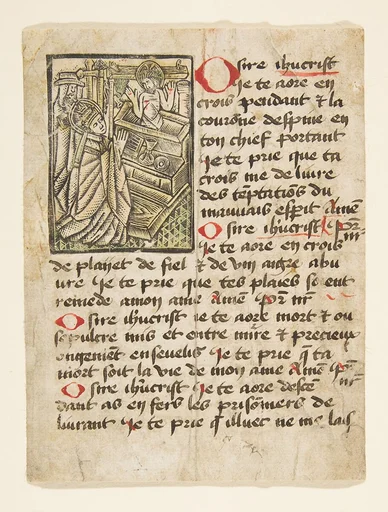 O sire ihũcrist
Je te aore en
crois pendant ⁊ la
couronne despine en
ton chief portant
Je te prie que ta
crois me delivre
des tẽptatiõs du
mauuais espit Amẽ
O sire ihũcrist pr̃ nr̃
Je te aore en crois
de plaiiet de fiel ⁊ de vin aigre abu
ure Je te prie que tes plaies soient
remede a mon ame Amẽ Pr̃ nr̃
O sire ihũcrist ie te aore mort ⁊ ou
sepulcre mis et entre mirre ⁊ precieux
ongement enseuelis Je te prie q̃ ta
mort soit la vie de mon ame Amẽ pr̃ nr̃
O sire ihũcrist Je te aore descẽ
dant as enfers les prisõniers de
liurant Je te prie q̃ illuec ne me lais